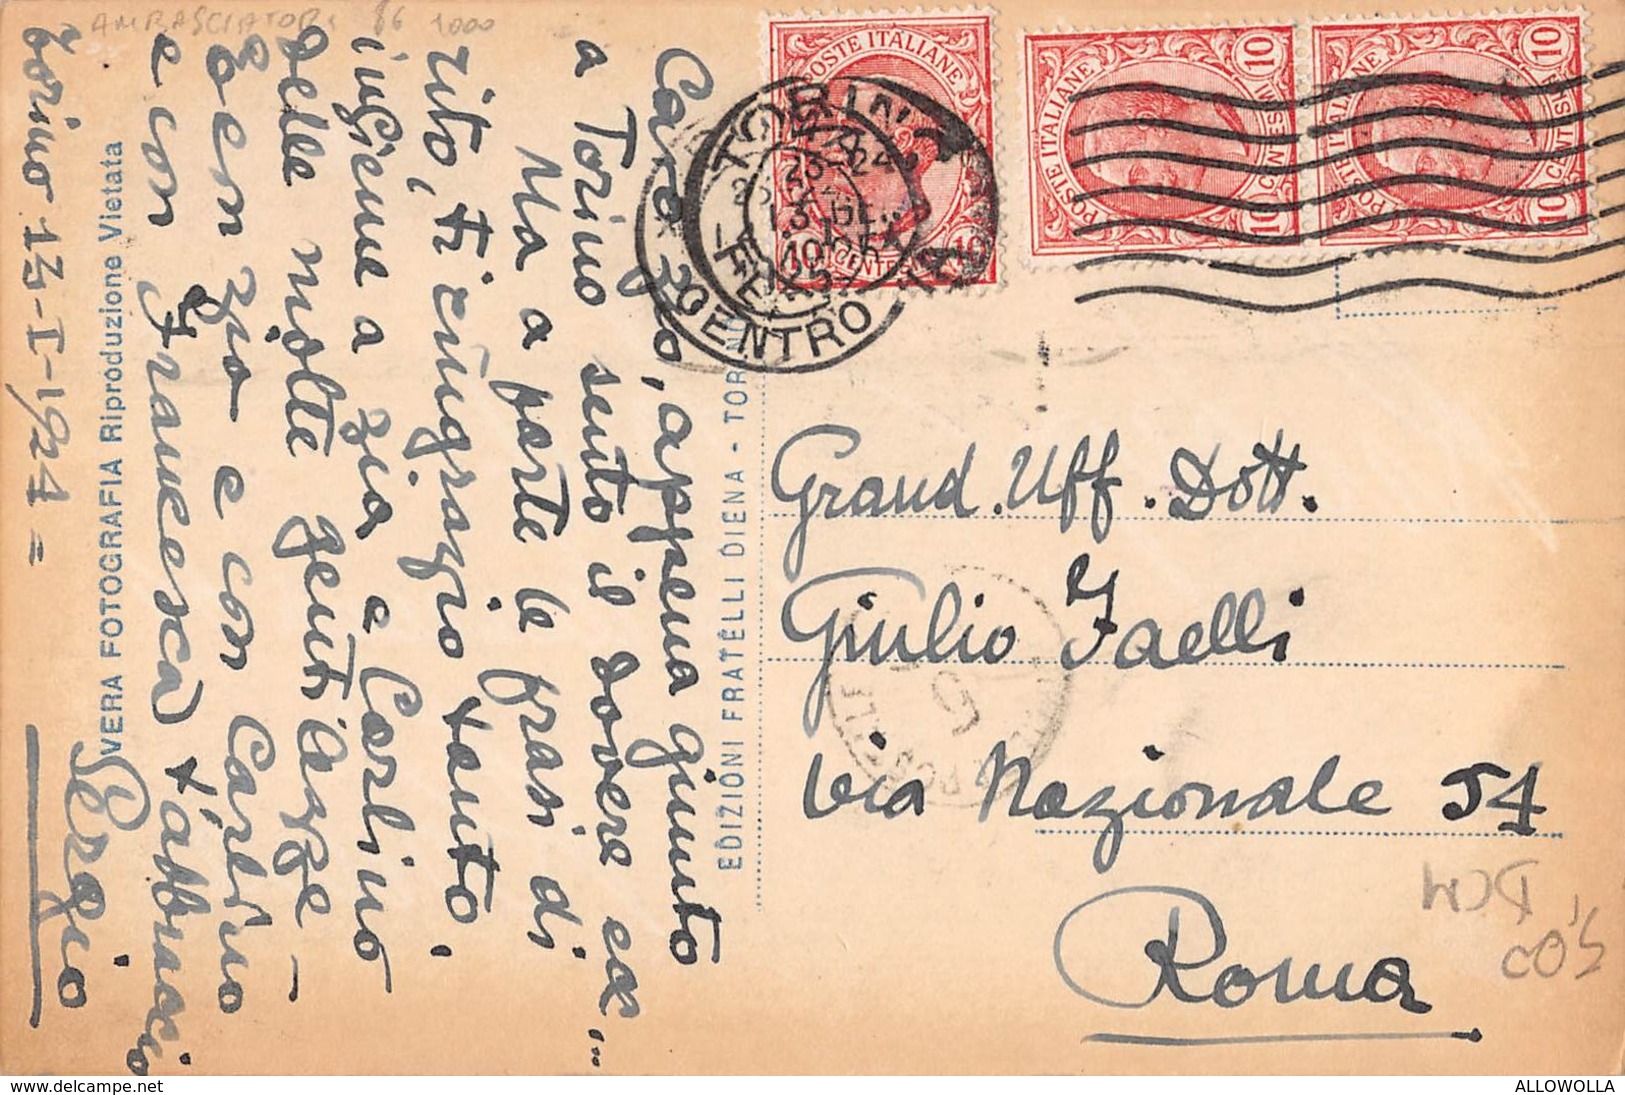 AMBASCIATORI 86 1000
Caro zio, appena giunto
a Torino sento il dovere ed...
Ma a parte le frasi di
rito, ti ringrazio tanto,
insieme a zia e Carlino
delle molte gentilezze -
e con zio e con Carlino
e con Francesca) t'abbraccio
Sergio
Torino 13-I-1924 =
VERA FOTOGRAFIA Riproduzione Vietata
EDIZIONI FRATELLI DIENA - TORINO
POSTE ITALIANE
10
CENTESIMI
POSTE ITALIANE
10
10
CENTESIMI
POSTE ITALIANE
10
10
CENTESIMI
TORINO
CENTRO
23-24
Grand. Uff. Dott.
Giulio Faelli
Via Nazionale 54
Roma
5
DCM
5,00
ALLOWOLLA
www.delcampe.net